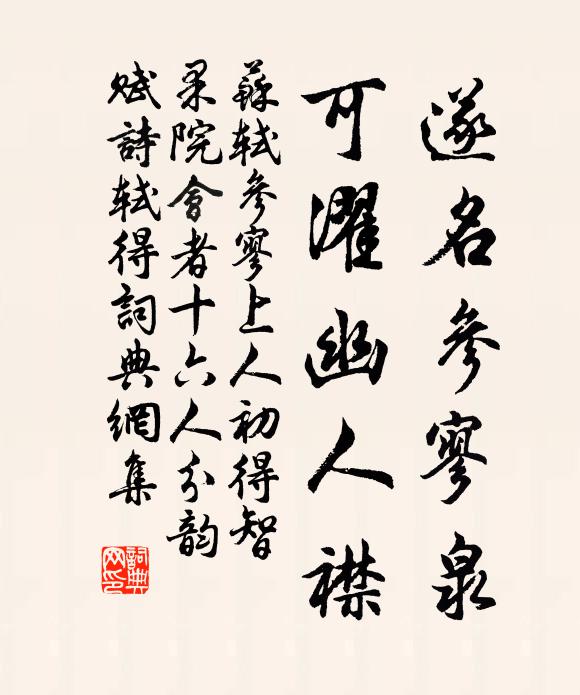 遂名參寥泉
可濯幽人襟
蘇軾參寥上人初得智
果院會者十六人分韵
賦詩軾得詞典網集
詞典网印